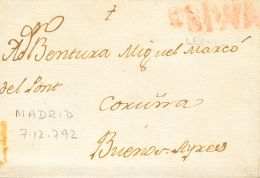 +
ESPAÑA
A Dn Bentura Miguel Marcó
del Pont
Coruña
MADRID
7.12.792
Buenos-Ayres